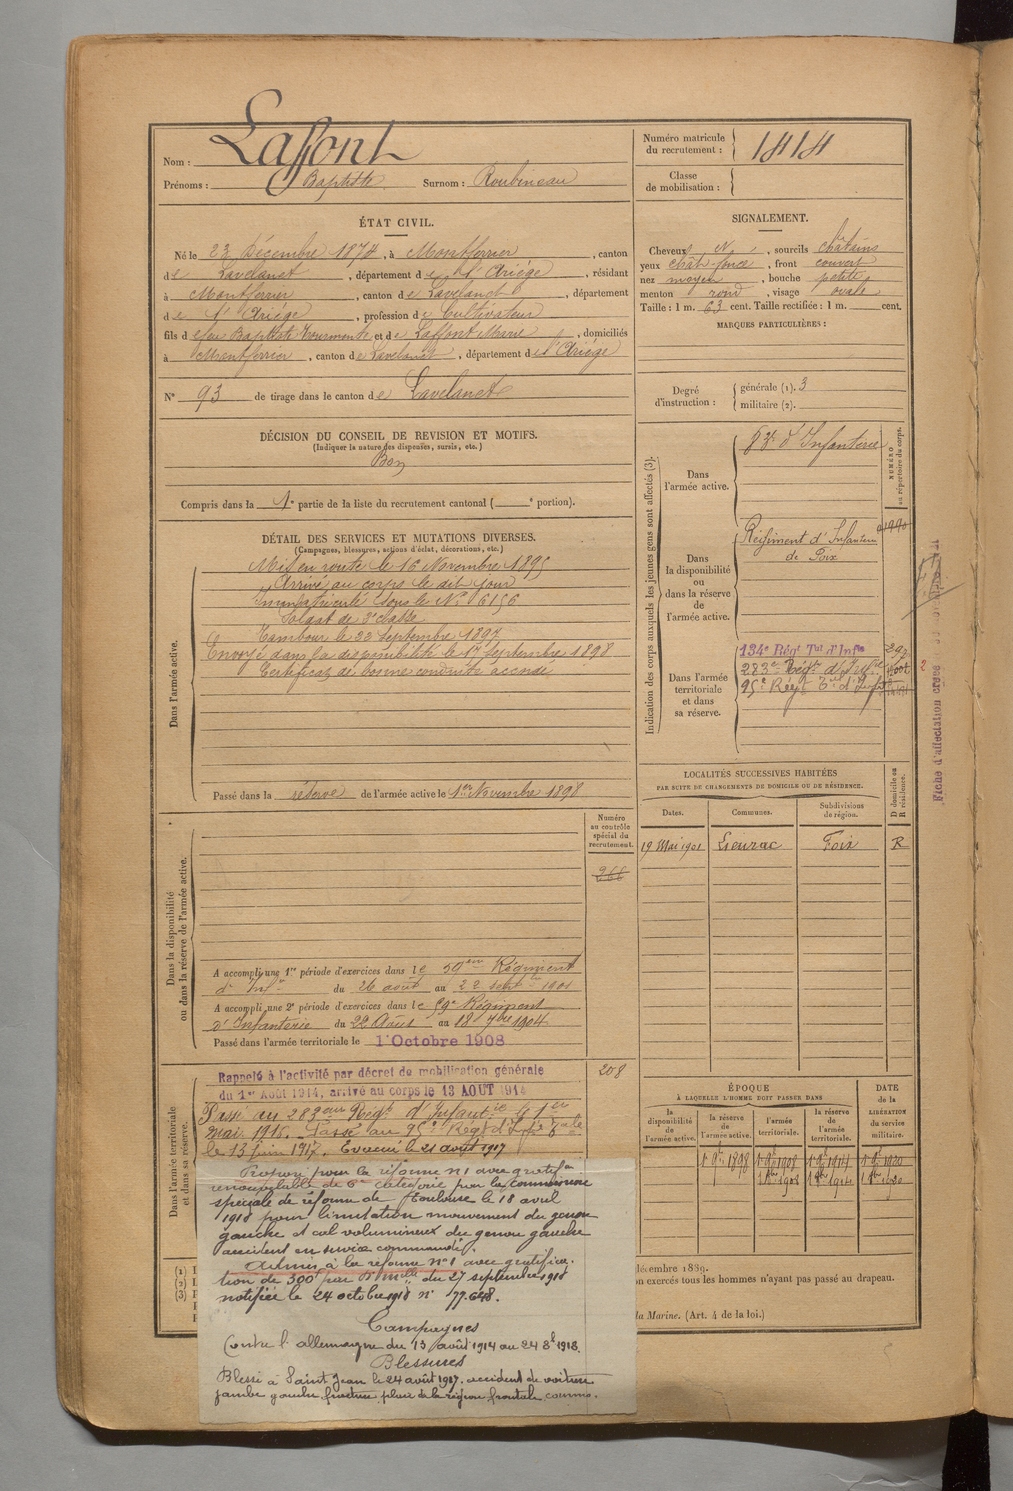 Nom : Laffont
Prénoms : Baptiste Surnom : Roubineau
Numéro matricule du recrutement : 1414
Classe de mobilisation :
ÉTAT CIVIL.
Né le 23 Décembre 1874, à Montferrier, canton
de Lavelanet, département de l'Ariége, résidant
à Montferrier, canton de Lavelanet, département
de l'Ariége, profession de Cultivateur
fils de feu Baptiste et de Laffont Marie, domiciliés
à Montferrier, canton de Lavelanet, département de l'Ariége
N° 93 de tirage dans le canton de Lavelanet
SIGNALEMENT.
Cheveux N, sourcils châtains
yeux chât-foncé, front couvert
nez moyen, bouche petite
menton rond, visage ovale
Taille : 1 m. 63 cent. Taille rectifiée : 1 m. cent.
MARQUES PARTICULIÈRES :
Degré d'instruction : générale (1). 3
militaire (2).
DÉCISION DU CONSEIL DE REVISION ET MOTIFS.
(Indiquer la nature des dispenses, sursis, etc.)
Bon
Compris dans la 1e partie de la liste du recrutement cantonal ( e portion).
DÉTAIL DES SERVICES ET MUTATIONS DIVERSES.
(Campagnes, blessures, actions d'éclat, décorations, etc.)
Dans l'armée active.
Mis en route le 16 Novembre 1895
Arrivé au corps le dit jour
Immatriculé sous le N° 6156
Soldat de 2e classe
Tambour le 22 Septembre 1897
Envoyé dans la disponibilité le 17 Septembre 1898
Certificat de bonne conduite accordé
Passé dans la réserve de l'armée active le 1er Novembre 1898
Indication des corps auxquels les jeunes gens sont affectés (3).
NUMÉRO au répertoire du corps.
Dans l'armée active.
d'Infanterie
Dans la disponibilité ou dans la réserve de l'armée active.
Régiment d'Infanterie
de Foix
Dans l'armée territoriale et dans sa réserve.
134e Régt Tal d'Infie
283e Régt d'Infie
95e Régt Tal d'Infie
Fiche d'affectation
LOCALITÉS SUCCESSIVES HABITÉES
PAR SUITE DE CHANGEMENTS DE DOMICILE OU DE RÉSIDENCE.
D domicile ou R résidence.
Dates. Communes. Subdivisions de région.
19 Mai 1901 Lieurac Foix R
Dans la disponibilité ou dans la réserve de l'armée active.
Numéro au contrôle spécial du recrutement.
266
A accompli une 1re période d'exercices dans le 59em Régiment
d'Infie du 26 août au 22 septbre 1901
A accompli une 2e période d'exercices dans le 59e Régiment
d'Infanterie du 22 Août au 18 7bre 1904
Passé dans l'armée territoriale le 1 Octobre 1908
Dans l'armée territoriale et dans sa réserve.
208
Rappelé à l'activité par décret de mobilisation générale
du 1er Août 1914, arrivé au corps le 13 AOUT 1914
Passé au 283eme Régt d'Infantie le 1er
mai 1916. Passé au 95e Régt d'Infie Tale
le 13 juin 1917. Evacué le 21 août 1917
Proposé pour la réforme n°1 avec gratifon
renouvelable de 6e catégorie par la commission
spéciale de réforme de Toulouse le 18 avril
1918 pour limitation mouvement du genou
gauche et cal volumineux du genou gauche
accident en service commandé.
Admis à la réforme n°1 avec gratifica-
tion de 300f par Don Mlle du 27 septembre 1918
notifiée le 24 octobre 1918 n° 77.648.
Campagnes
Contre l'allemagne du 13 août 1914 au 24 8bre 1918.
Blessures
Blessé à Saint Jean le 24 août 1917. accident de voiture
jambe gauche fracture plaie de la région frontale
ÉPOQUE
À LAQUELLE L'HOMME DOIT PASSER DANS
la disponibilité de l'armée active. la réserve de l'armée active. l'armée territoriale. la réserve de l'armée territoriale.
DATE DE LA LIBÉRATION DU SERVICE MILITAIRE.
1 9bre 1898 1 9bre 1908 1 9bre 1914 1 9bre 1920
1 8bre 1908 1 8bre 1914 1 8bre 1920
(1)
(2)
(3)
décembre 1889.
on exercés tous les hommes n'ayant pas passé au drapeau.
la Marine. (Art. 4 de la loi.)